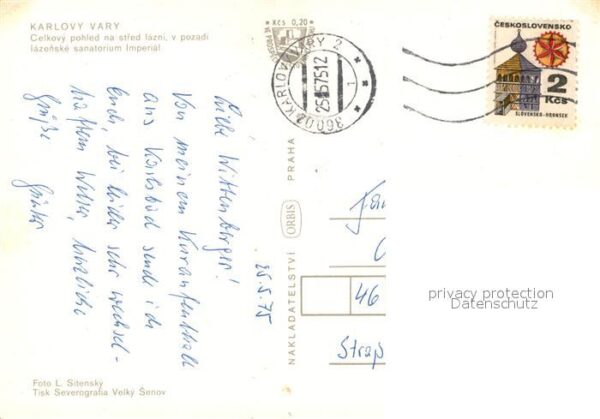 KARLOVY VARY
Celkový pohled na střed lázní, v pozadí
lázeňské sanatorium Imperiál
Kčs 0,20
360 02 KARLOVY VARY 2
25.-5.75 12
1
ČESKOSLOVENSKO
2
Kčs
SLOVENSKO-HRONSEK
25.5.75
Liebe Wittenberger!
Von meinem Kuraufenthalt
aus Karlsbad sende ich
Euch, bei leider sehr wechsel-
haftem Wetter, herzliche
Grüße
Günter
NAKLADATELSTVÍ ORBIS PRAHA
46
privacy protection
Datenschutz
Foto L. Sitenský
Tisk Severografia Velký Šenov